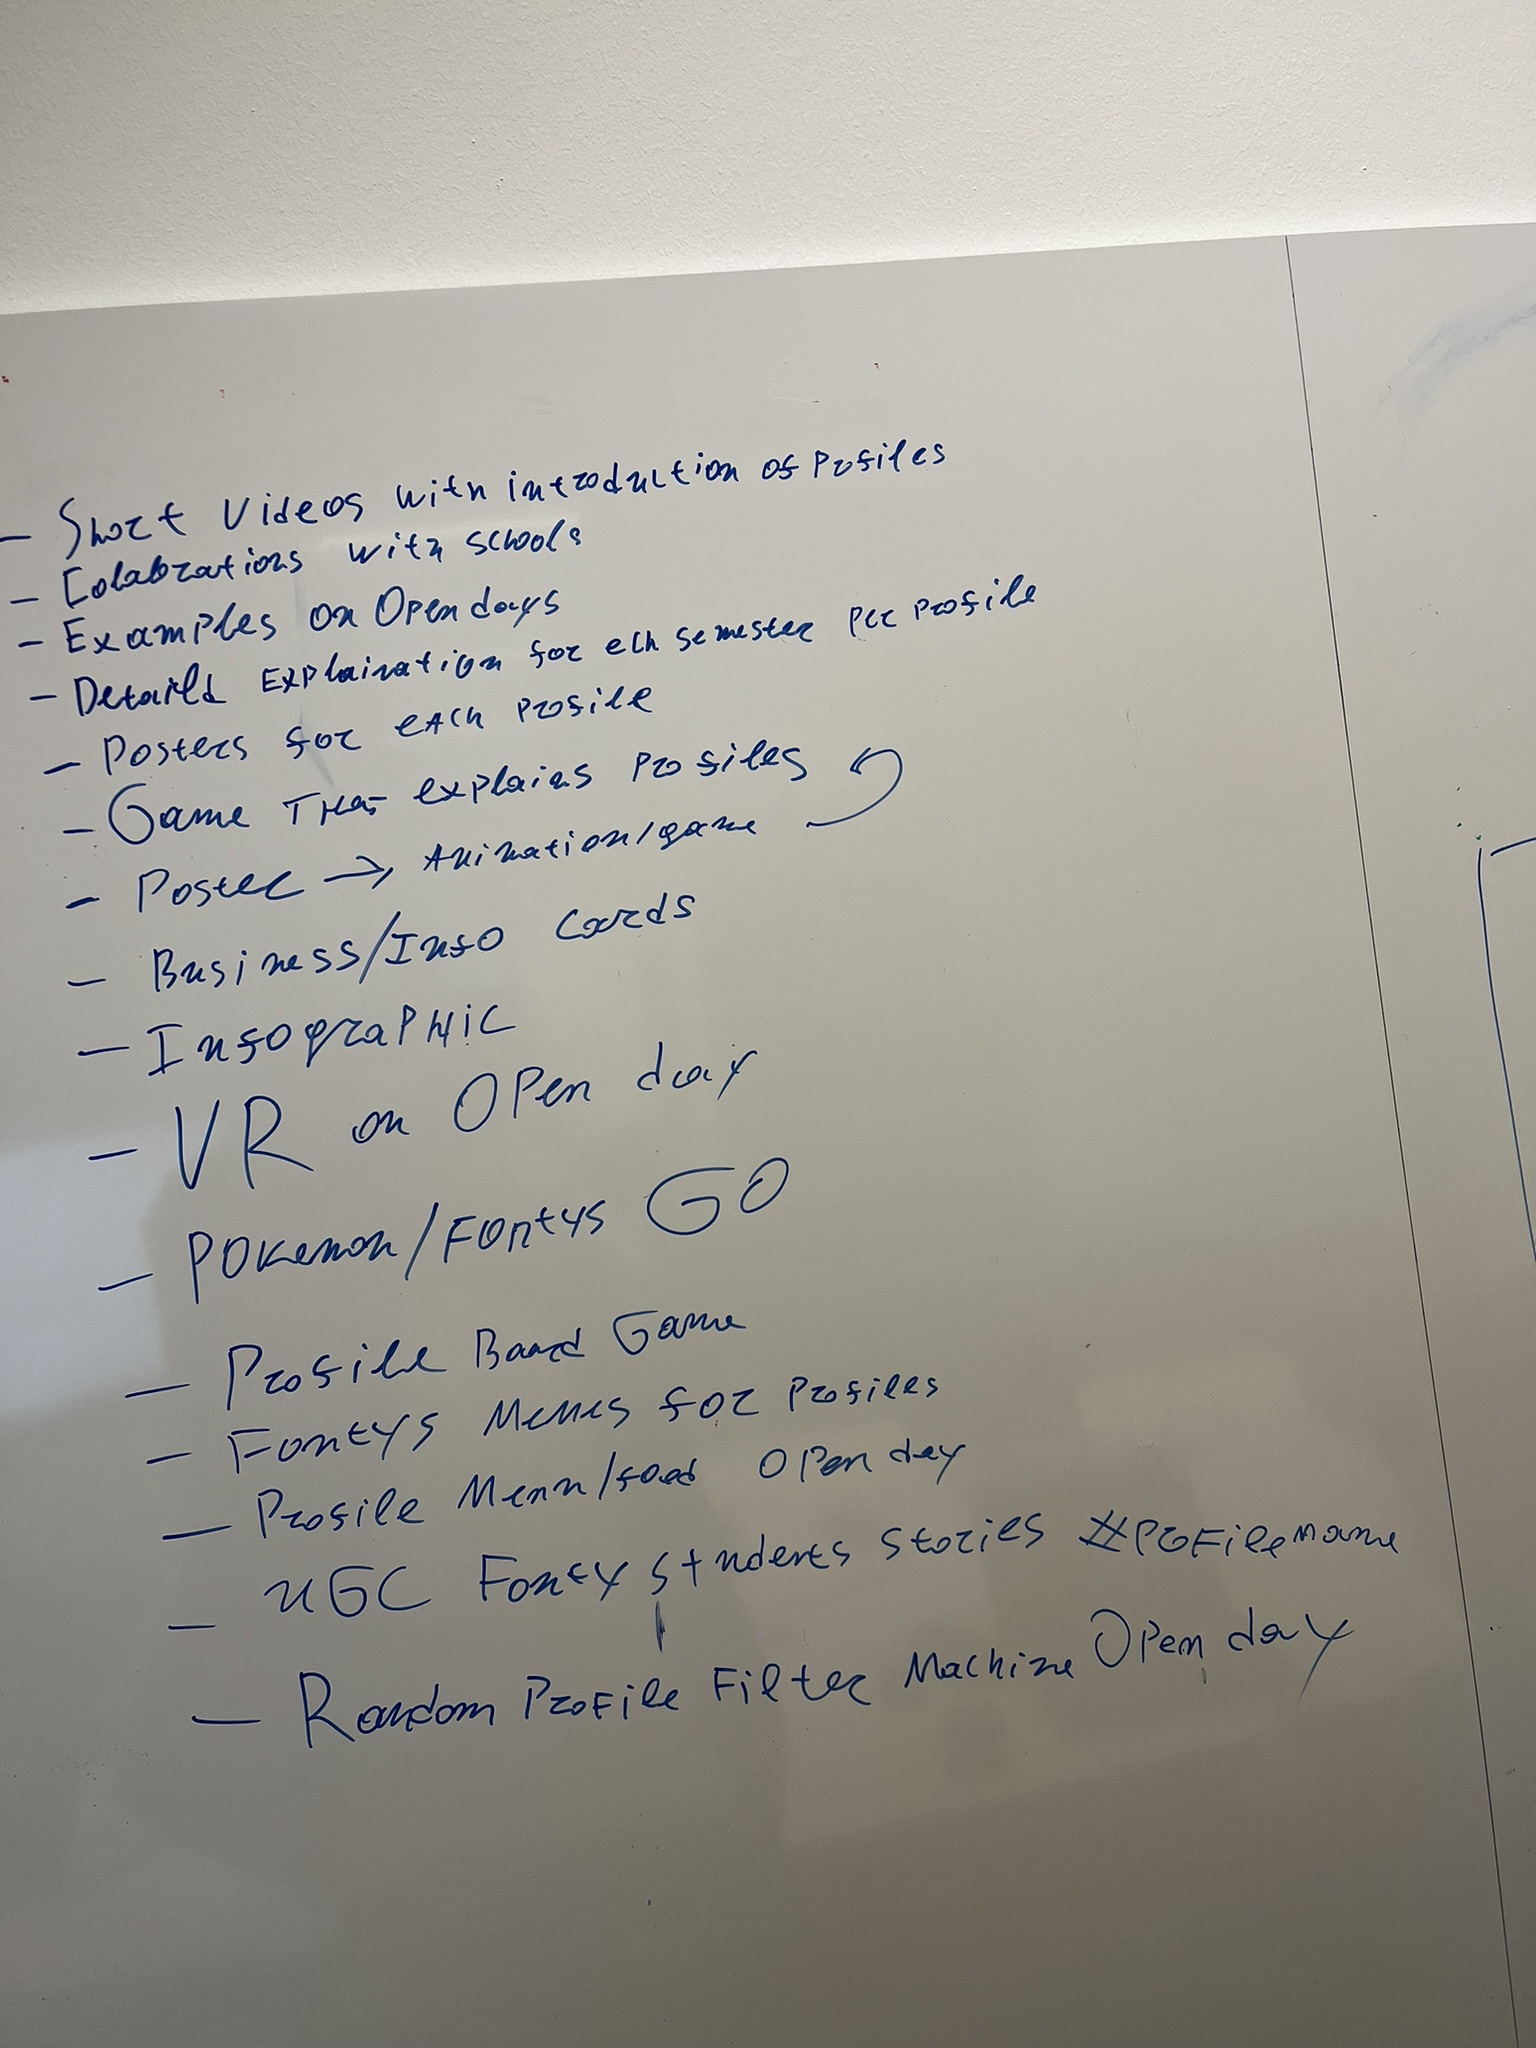 - Short Videos with introduction of Profiles
- Colabrations with schools
- Examples on Open days
- Detaild Explaination for ech semester per profile
- Posters for each profile
- Game That explains Profiles
- Poster → Animation/game
- Business/Info Cards
- Infographic
- VR on Open day
- Pokemon/Fontys GO
- Profile Board Game
- Fontys Memes for Profiles
- Profile Menu/food Open day
- UGC Fontys students stories #ProFilename
- Random Profile Filter Machine Open day